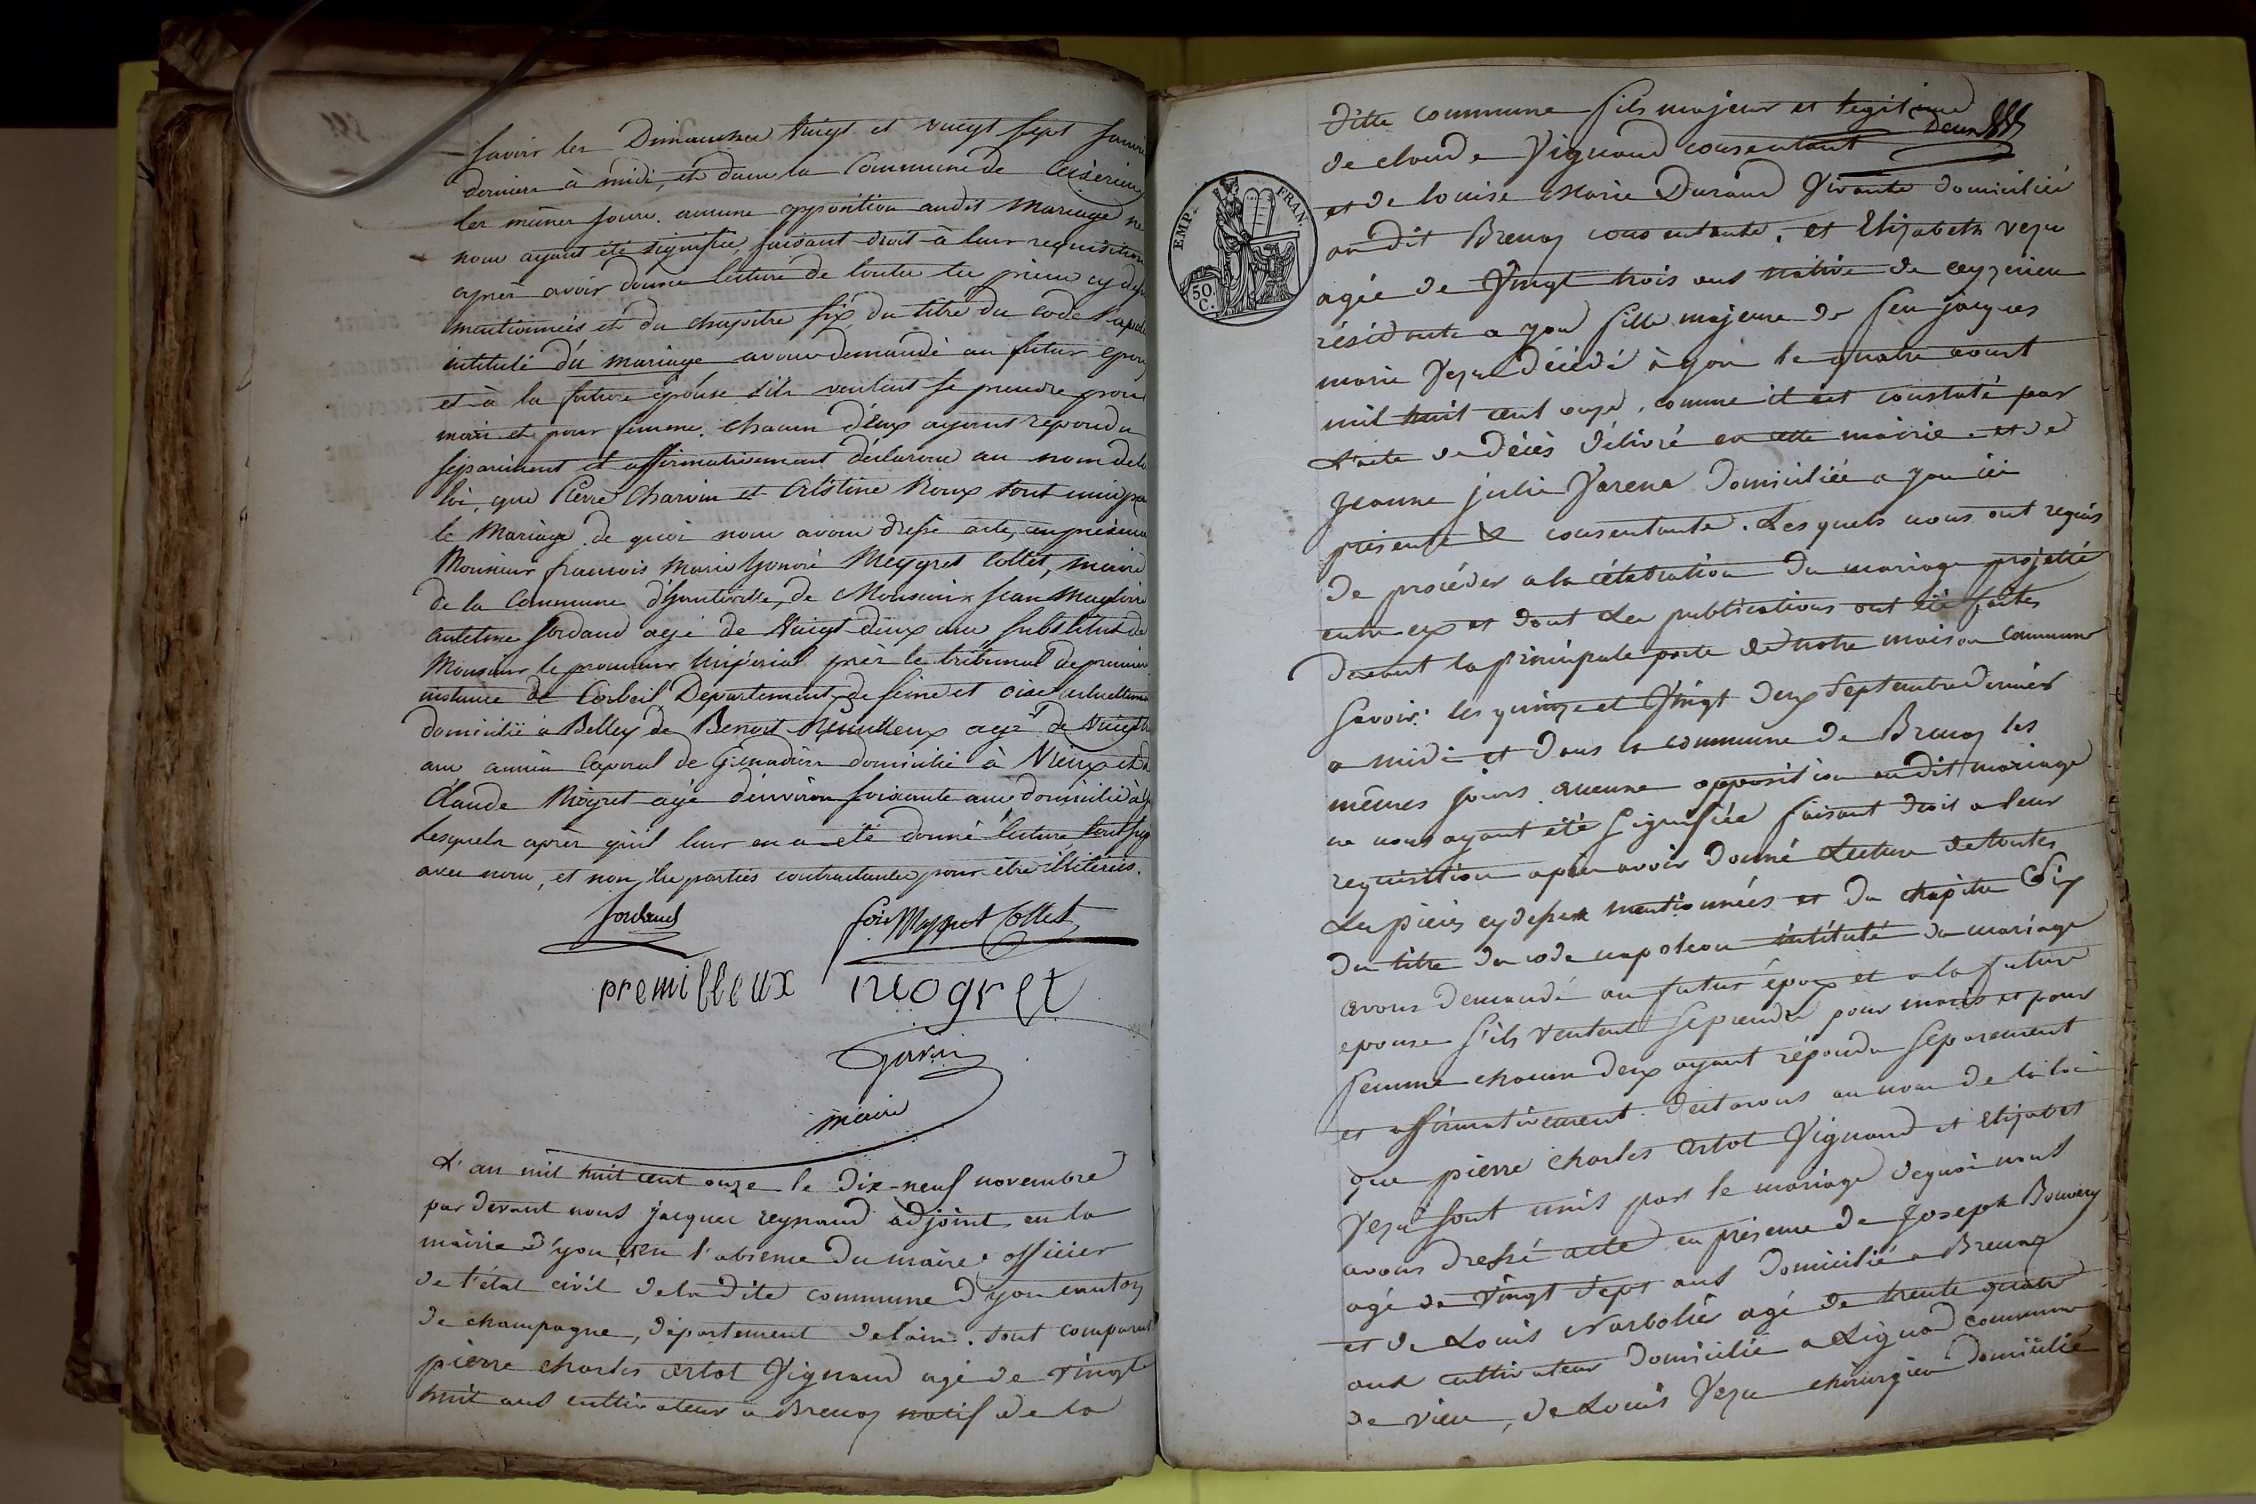 savoir les Dimanches vingt et vingt sept Janvier
derniers à midi, et dans la Commune de Ceiserieu
les mêmes jours. aucune opposition audit Mariage ne
nous ayant été signifiée, faisant droit à leur requisition
après avoir donné lecture de toutes les pieces cy dessus
mentionnées et du chapitre six du titre du code Napoleon
intitulé du mariage avons demandé au futur epoux
et à la future épouse s'ils veulent se prendre pour
mari et pour femme. Chacun d'eux ayant repondu
séparément et affirmativement déclarons au nom de la
loi, que Pierre Charvin et Cristine Roux sont unis par
le Mariage. de quoi nous avons dressé acte, en présence
Monsieur francois Marie honoré Meygret Collet, maire
de la Commune d'hauteville, de Monsieur Jean Magloire
antelme Jordand agé de Vingt deux ans substitut de
Monsieur le procureur Impérial près le tribunal de première
instance de Corbeil Departement de seine et oise actuellement
domicilié à Belley de Benoit Premilleux agé de Vingt
ans ancien Caporal de Grenadiers domicilié à Vieux et de
Claude Mogret agé d'environ soixante ans domicilié à
lesquels après qu'il leur en a été donné lecture, ont signé
avec nous, et non les parties contractantes pour être illitérés.
Jordand fois Meygret Collet
premilleux mogret
Garin
maire
L'an mil huit cent onze le dix-neuf novembre
par devant nous jacques reynaud adjoint en la
mairie d'yon, en l'absence du maire officier
de l'état civil de la dite commune d'yon canton
de champagne, département de lain. sont comparus
pierre charles artot Vignand agé de vingt
huit ans cultivateur a Brenaz natif de la
EMP. FRAN.
50 C.
ditte commune fils majeur et legitime
deux
de claude Vignand consentant
et de louise Marie Durand Vivante domiciliée
au dit Brenaz consentante, et Elizabeth vezu
agée de Vingt trois ans native de ceyzerieu
résidante a yon fille majeure de feu jacques
marie Vezu décédé à yon le quatre aout
mil huit cent onze, comme il est constaté par
l'acte de décès délivré en cette mairie et de
Jeanne julie Varene domiciliée a yon ici
présente & consentante. Lesquels nous ont requis
de procéder a la célébration du mariage projetté
entre eux et dont les publications ont été faites
devant la principale porte de notre maison commune
Savoir les quinze et Vingt deux septembre dernier
a midi et dans la commune de Brenaz les
mêmes jours. aucune opposition audit mariage
ne nous ayant été signifiée faisant droit a leur
requisition apres avoir donné Lecture de toutes
Les pièces cy dessus mentionnées et du chapitre Six
du titre du code napoleon intitulé du mariage
avons demandé au futur époux et a la future
epouse s'ils veulent se prendre pour maris et pour
femme chacun deux ayant répondu séparement
et affirmativement declarons au nom de la loi
que pierre charles artot Vignand et Elizabet
Vezu sont unis par le mariage de quoi nous
avons dressé acte en présence de Joseph Bouvery
agé de Vingt sept ans domicilié a Brenaz
et de Louis Narbolié agé de trente quatre
ans cultivateur domicilié a Lignod commune
de vieu, de Louis Vezu chirurgien domicilié